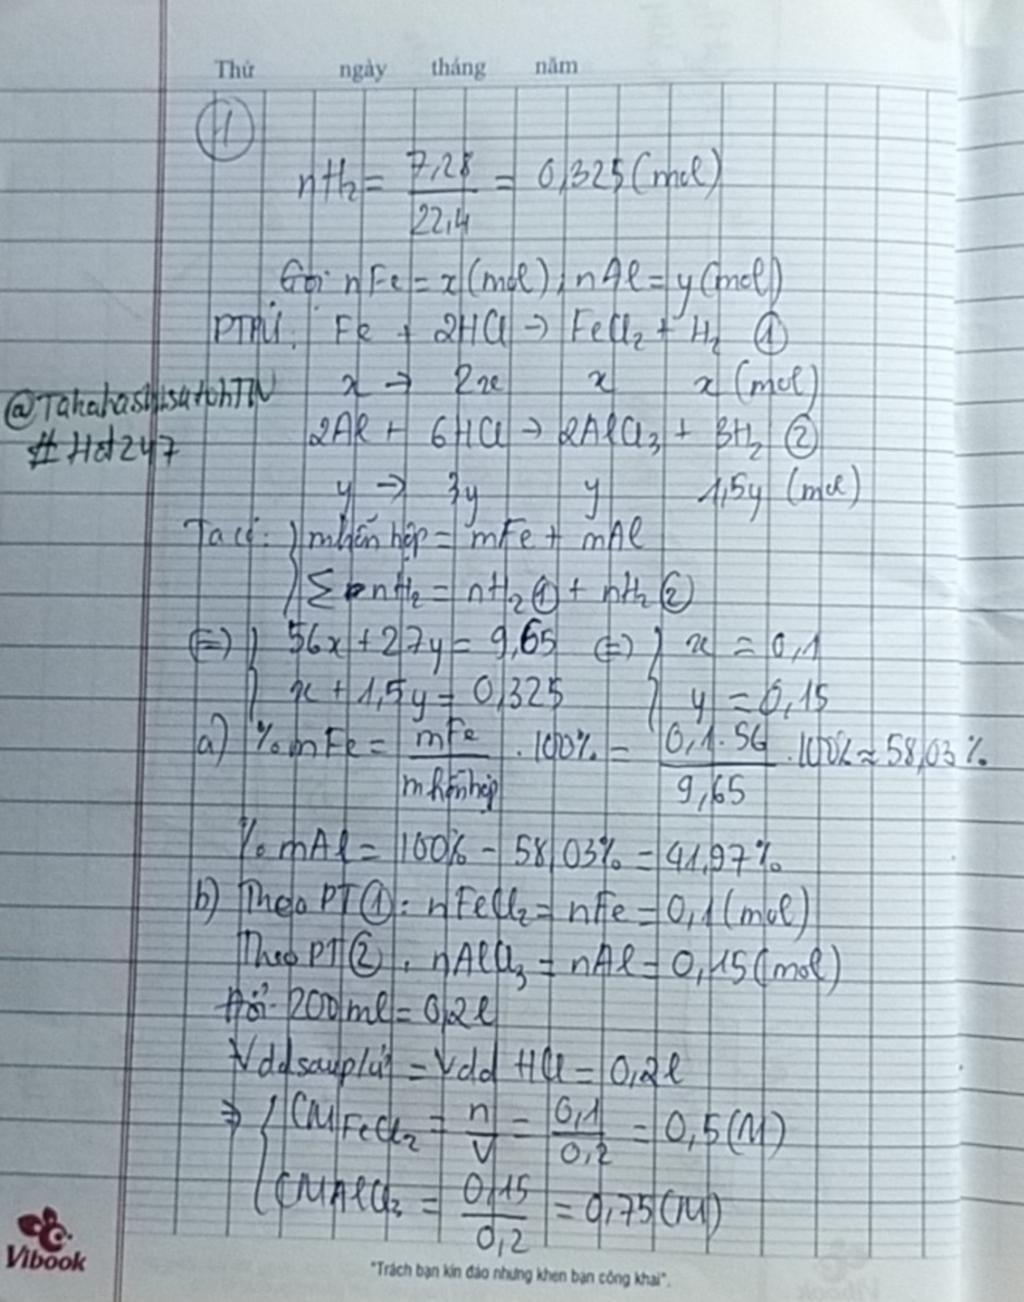 Thứ ngày tháng năm
1
nH₂ = 7,28/22,4 = 0,325 (mol)
Gọi nFe = x (mol); nAl = y (mol)
PTPỨ: Fe + 2HCl → FeCl₂ + H₂ ①
x → 2x x x (mol)
@TakahashisatohTIN
#Hd247
2Al + 6HCl → 2AlCl₃ + 3H₂ ②
y → 3y y 1,5y (mol)
Ta có: { mhỗn hợp = mFe + mAl
{ Σ nH₂ = nH₂① + nH₂②
(=) { 56x + 27y = 9,65 (=) { x = 0,1
{ x + 1,5y = 0,325 { y = 0,15
a) %mFe = mFe/mhỗn hợp . 100% = 0,1.56/9,65 . 100% ≈ 58,03%
%mAl = 100% - 58,03% = 41,97%
b) Theo PT①: nFeCl₂ = nFe = 0,1 (mol)
Theo PT②: nAlCl₃ = nAl = 0,15 (mol)
Đổi 200ml = 0,2l
Vdd sau p/ứ = Vdd HCl = 0,2l
⇒ { CM FeCl₂ = n/V = 0,1/0,2 = 0,5 (M)
{ CM AlCl₃ = 0,15/0,2 = 0,75 (M)
Vibook
"Trách bạn kín đáo nhưng khen bạn công khai".